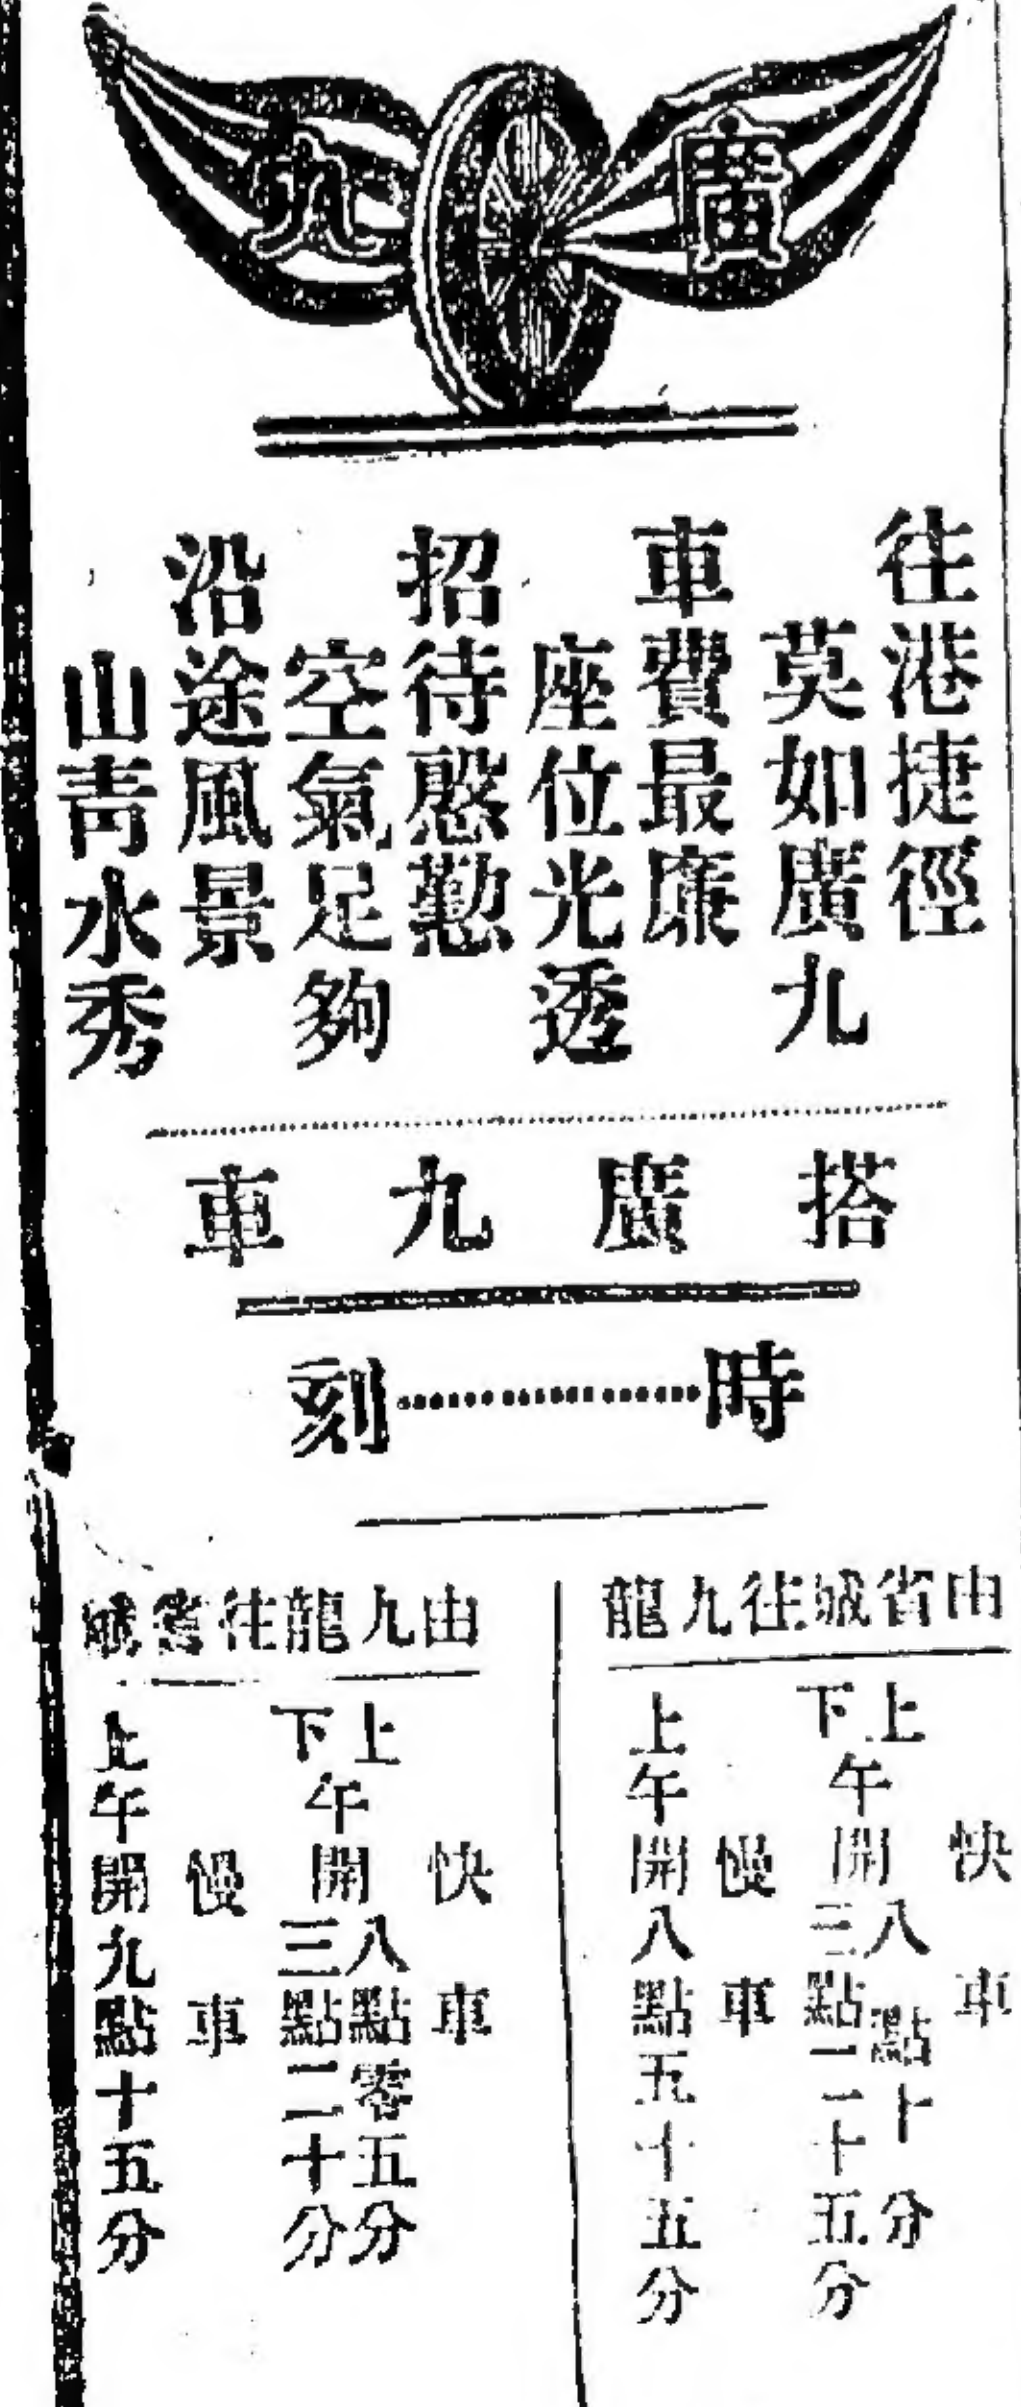 廣九
往港捷徑
莫如廣九
車費最廉
座位光透
招待慇懃
空氣足夠
沿途風景
山青水秀
搭廣九車
時刻
由省城往九龍
快車
上午開八點十分
下午開三點二十五分
慢車
上午開八點五十五分
由九龍往省城
快車
上午開八點零五分
下午開三點二十分
慢車
上午開九點十五分